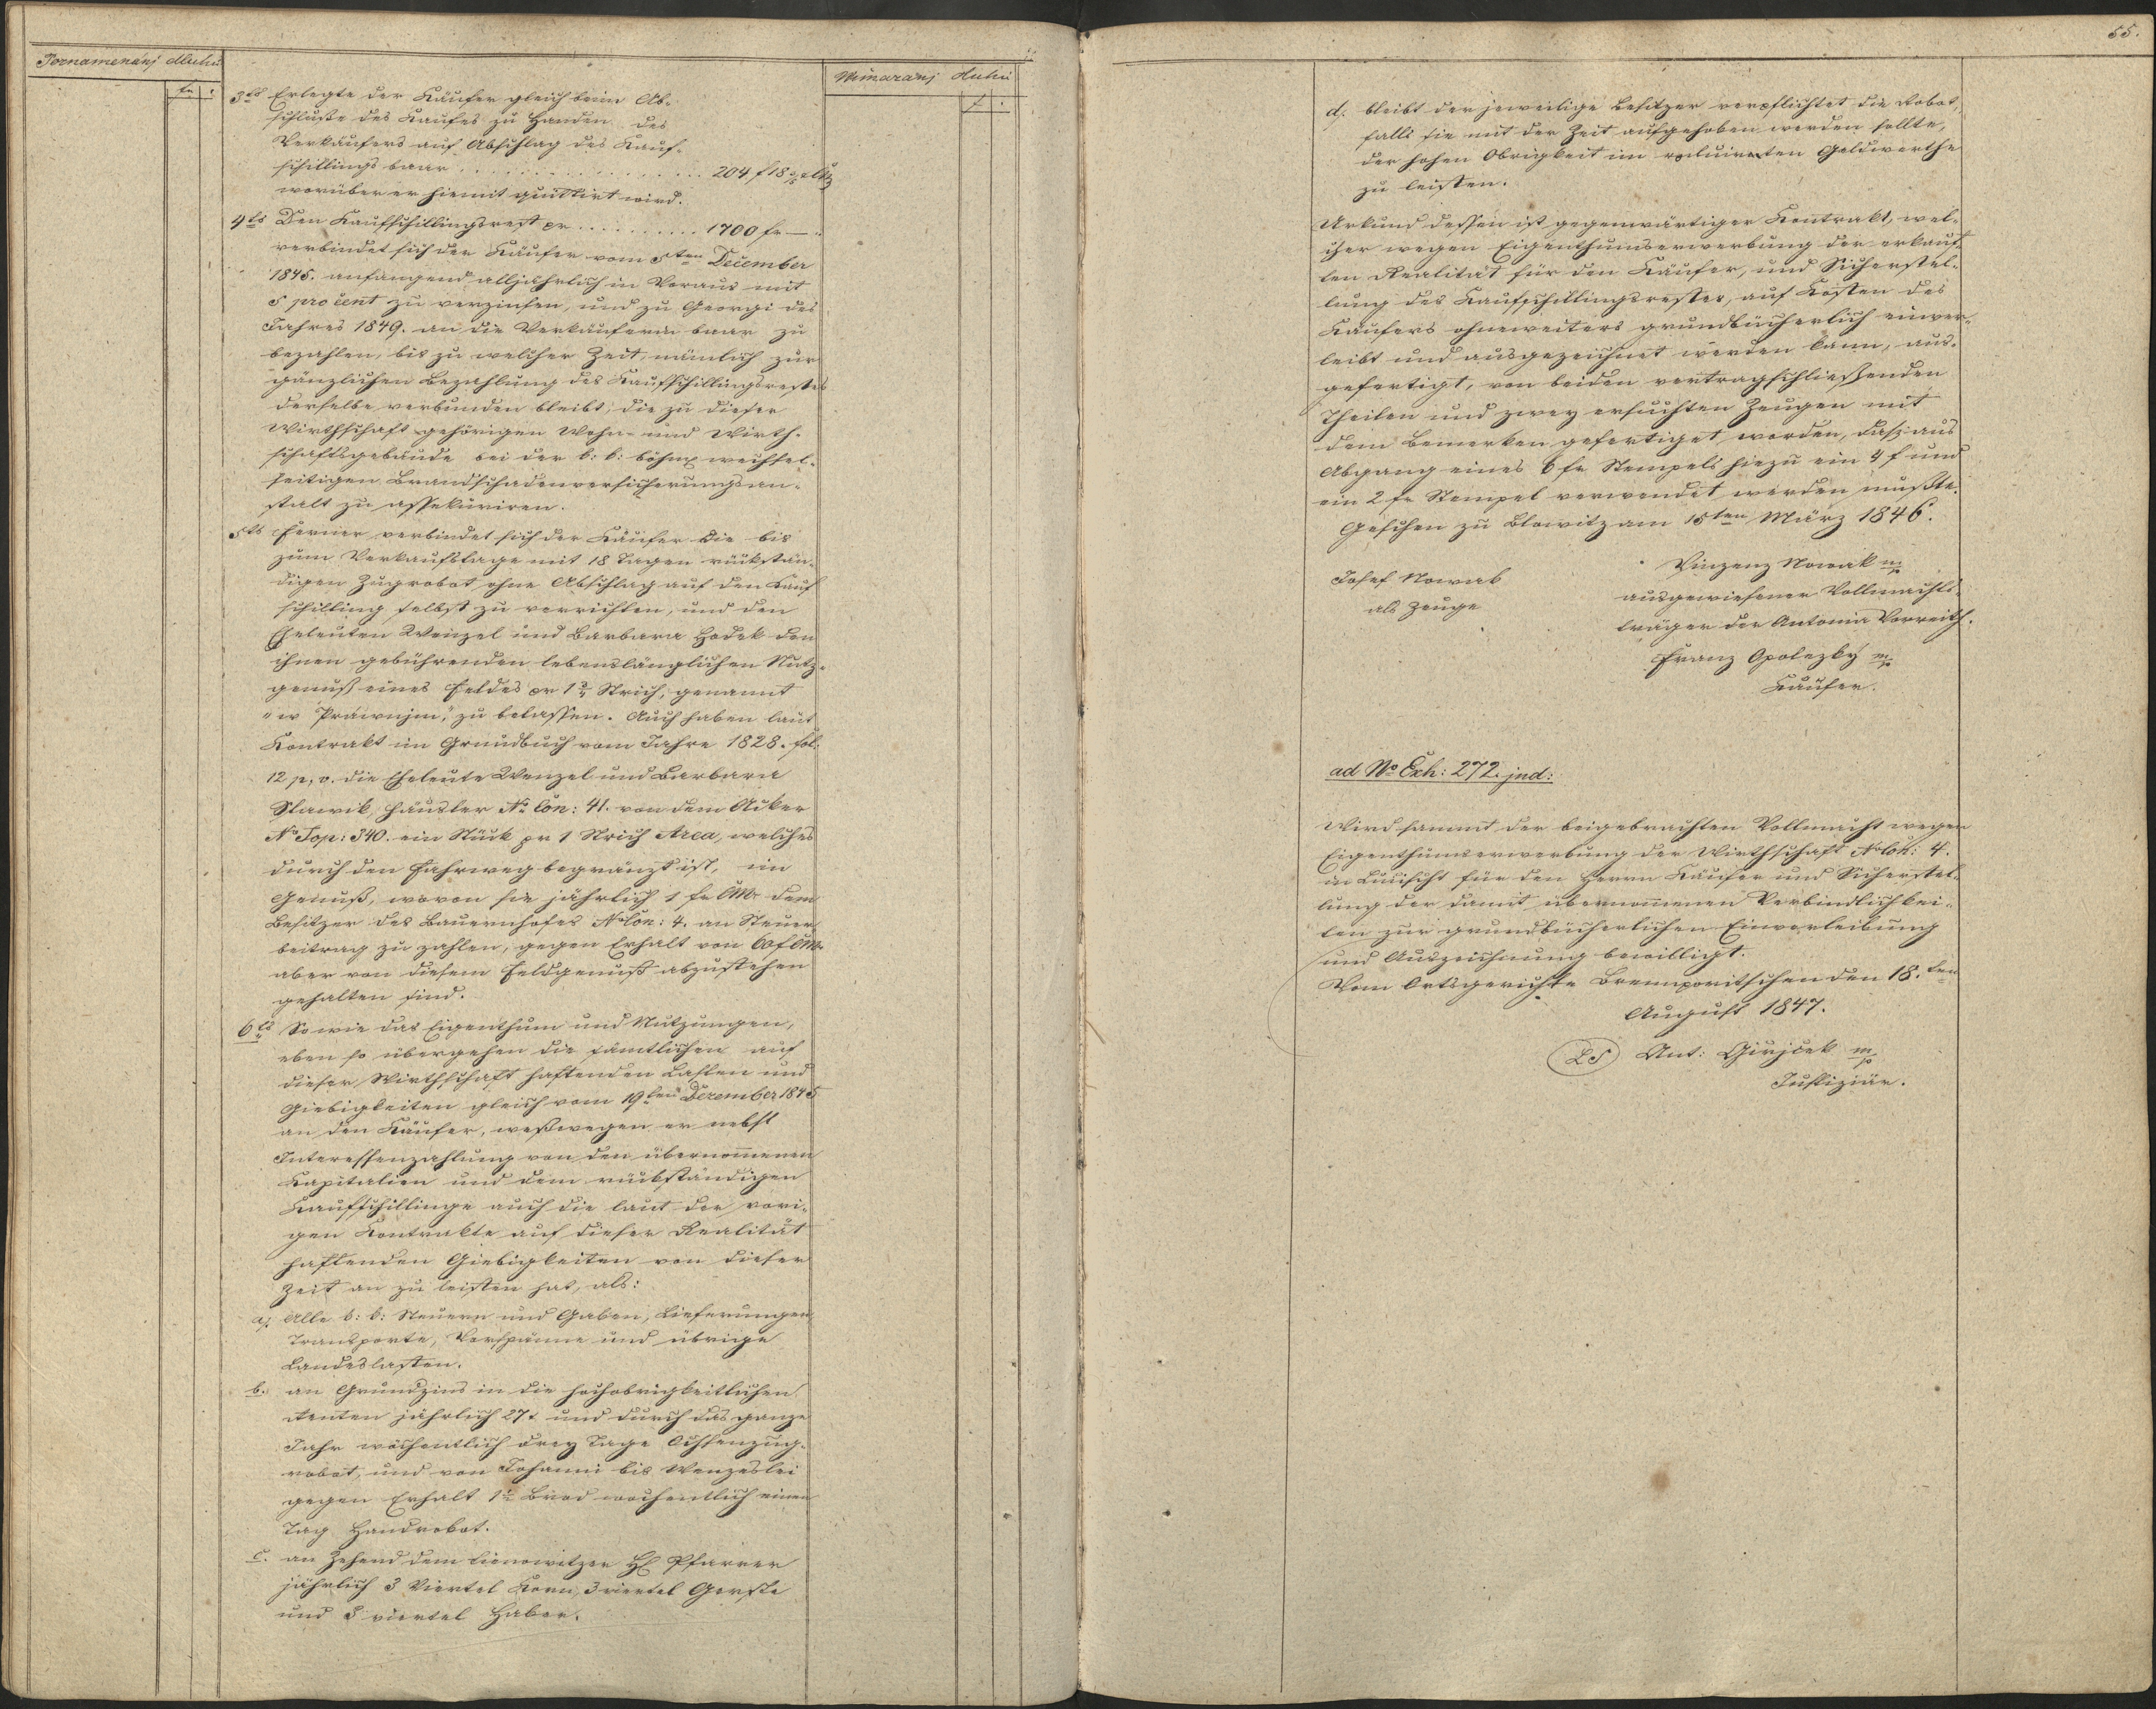 Poznamenánj dluhů
fr
3tens Erlegte der Käufer gleich beim Ab-
schluße des Kaufes zu Handen des
Verkäufers auf Abschlag des Kauf-
schillings baar . . . . . . . . . . . . . . . . 204 f 18
worüber er hiemit quittirt wird.
4tens Den Kaufschillingsrest pr . . . . . . . . . . 1700 fr —
verbindet sich der Käufer vom 5ten December
1845. anfangend alljährlich in Voraus mit
5 procent zu verzinsen, und zu Georgi des
Jahres 1849. an die Verkäuferin baar zu
bezahlen, bis zu welcher Zeit, nämlich zur
gänzlichen Bezahlung des Kaufschillingsrestes
derselbe verbunden bleibt, die zu dieser
Wirthschaft gehörigen Wohn- und Wirth-
schaftsgebäude bei der k: k: böhm wechsel-
seitigen Brandschadenversicherungsan-
stalt zu assekuriren.
5tens Ferner verbindet sich der Käufer die bis
zum Verkaufstage mit 18 Tagen rükstän-
digen Zugrobot ohne Abschlag auf den Kauf
schilling selbst zu verrichten, und den
Eheleuten Wenzel und Barbara Hodek den
ihnen gebührenden lebenslänglichen Nutz-
genuß eines Feldes pr 1 2/4 Strich, genannt
"w Práwnjm", zu belassen. Auch haben laut
Kontrakt im Grundbuch vom Jahre 1828. fol:
12 p. v. die Eheleute Wenzel und Barbara
Slawik, Häusler No Con: 41. von dem Acker
No Top: 340. ein Stück pr 1 Strich Area, welches
durch den Fahrweg begränzt ist, im
Genuß, wovon sie jährlich 1 fr CM. dem
Besitzer des Bauernhofes No Con: 4. an Steuer
beitrag zu zahlen, gegen Erhalt von 60 f CM.
aber von diesem Feldgenuß abzustehen
gehalten sind.
6tens So wie das Eigenthum und Nutzungen,
eben so übergehen die sämtlichen auf
dieser Wirthschaft haftenden Lasten und
Giebigkeiten gleich vom 19ten Dezember 1845
an den Käufer, weßwegen er nebst
Interessenzahlung von den übernommenen
Kapitalien und dem rückständigen
Kaufschillinge auch die laut der vori-
gen Kontrakte auf dieser Realität
haftenden Giebigkeiten von dieser
Zeit an zu leisten hat, als:
a. Alle k: k: Steuern und Gaben, Lieferungen
Transporte, Vorspänne und übrige
Landeslasten.
b. an Grundzins in die hochobrigkeitlichen
Renten jährlich 27 x und durch das ganze
Jahr wöchentlich drey Tage Ochsenzug-
robot, und von Johanni bis Wenzeslei
gegen Erhalt Brod wochentlich einen
Tag Handrobot.
c. an Zehend dem Pfarrer
jährlich 3 Viertel Korn, 3 viertel Gerste
und 3 viertel Haber.
Wimazanj dluhu
f
55.
d. bleibt der jeweilige Besitzer verpflichtet die Robot,
falls sie mit der Zeit aufgehoben werden sollte,
der hohen Obrigkeit im reluirenten Geldwerthe
zu leisten.
Urkund dessen ist gegenwärtiger Kontrakt, wel-
cher wegen Eigenthumserwerbung der erkauf-
ten Realität für den Käufer, und Sicherstel-
lung des Kaufschillingsrestes, auf Kosten des
Käufers ohneweiters grundbücherlich einver-
leibt und ausgezeichnet werden kann, aus-
gefertigt, von beiden vertragschließenden
Theilen und zwey ersuchten Zeugen mit
dem Bemerken gefertiget worden, daß aus
Abgang eines 6 fr Stempels hiezu ein 4 f und
ein 2 fr Stempel verwendet werden mußte.
Geschen zu Blowitz am 15ten März 1846.
Josef Nowak
als Zeuge
Vinzenz Nowak mp
ausgewiesener Vollmachts-
träger der Antonia Vorreith.
Franz Opolezky mp
Käufer.
ad No Exh: 272. jud:
Wird sammt der beigebrachten Vollmacht wegen
Eigenthumserwerbung der Wirthschaft No Con: 4.
in für den Herrn Käufer und Sicherstel-
lung der damit übernommenen Verbindlichkei-
ten zur grundbücherlichen Einverleibung
und Auszeichnung bewilligt.
Vom Ortsgerichte Brennporitschen den 18.ten
August 1847.
LS Ant: Girjcek mp
Justiziär.